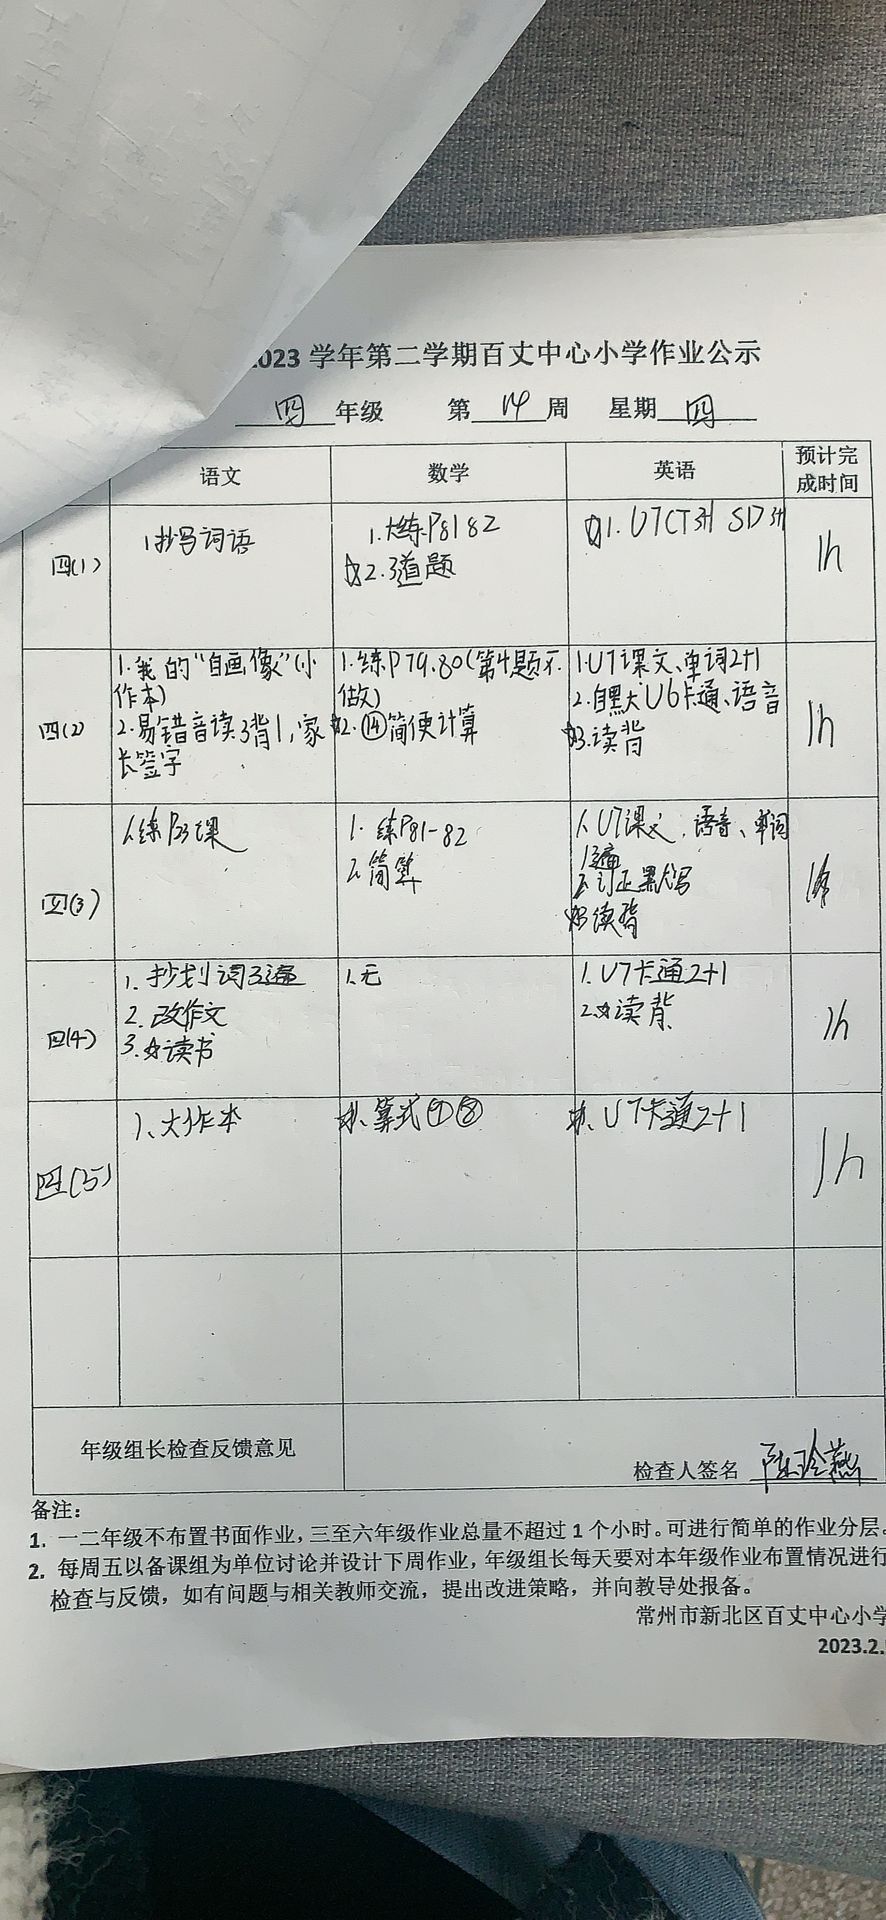 023 学年第二学期百丈中心小学作业公示
四 年级 第 14 周 星期 四
语文 数学 英语 预计完成时间
四(1)
1.抄写词语
1.大练P81 82
☆2.3道题
☆1. U7CT3H SD3H
1h
四(2)
1.我的“自画像”(小
作本)
2.易错音读3背1,家
长签字
1.练P79.80(第4题不
做)
☆2.⑭简便计算
1.U7课文、单词2+1
2.自默大U6卡通、语音
☆3.读背
1h
四(3)
1.练P23课
1.练P81-82
2.简算
1.U7课文、语音、单词
1遍
2.订正默写
☆3读背
四(4)
1.抄划词3遍
2.改作文
3.☆读书
1.无
1.U7卡通2+1
2.☆读背
1h
四(5)
1、大作本
☆1、算式⑦⑧
☆1、U7卡通2+1
1h
年级组长检查反馈意见
检查人签名 陈玲燕
备注:
1. 一二年级不布置书面作业,三至六年级作业总量不超过 1 个小时。可进行简单的作业分层。
2. 每周五以备课组为单位讨论并设计下周作业,年级组长每天要对本年级作业布置情况进行
检查与反馈,如有问题与相关教师交流,提出改进策略,并向教导处报备。
常州市新北区百丈中心小学
2023.2.